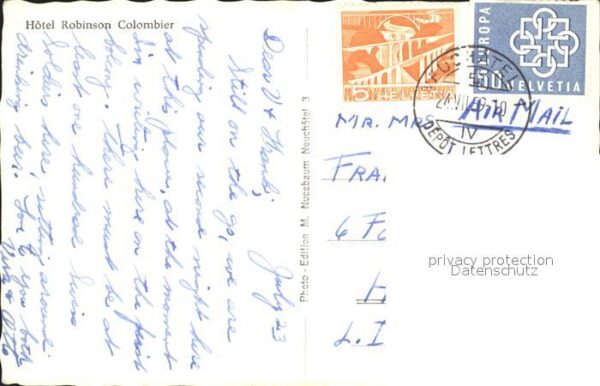 Hôtel Robinson Colombier
July 23
Dear V & Hank;
Still on the go, we are
spending our second night here
at this place, at the moment
I'm sitting here on the first
balcony. There must be at
least one hundred Swiss
Soldiers here, sitting around
drinking beer. Love to you both
Vera & Otto
Photo - Edition M. Nussbaum Neuchâtel 3
5
HELVETIA
EUROPA
50
HELVETIA
NEUCHÂTEL
24.VII.59-10
IV
DÉPÔT LETTRES
AIR MAIL
MR. MRS
FRA
6 F
L. I
privacy protection
Datenschutz